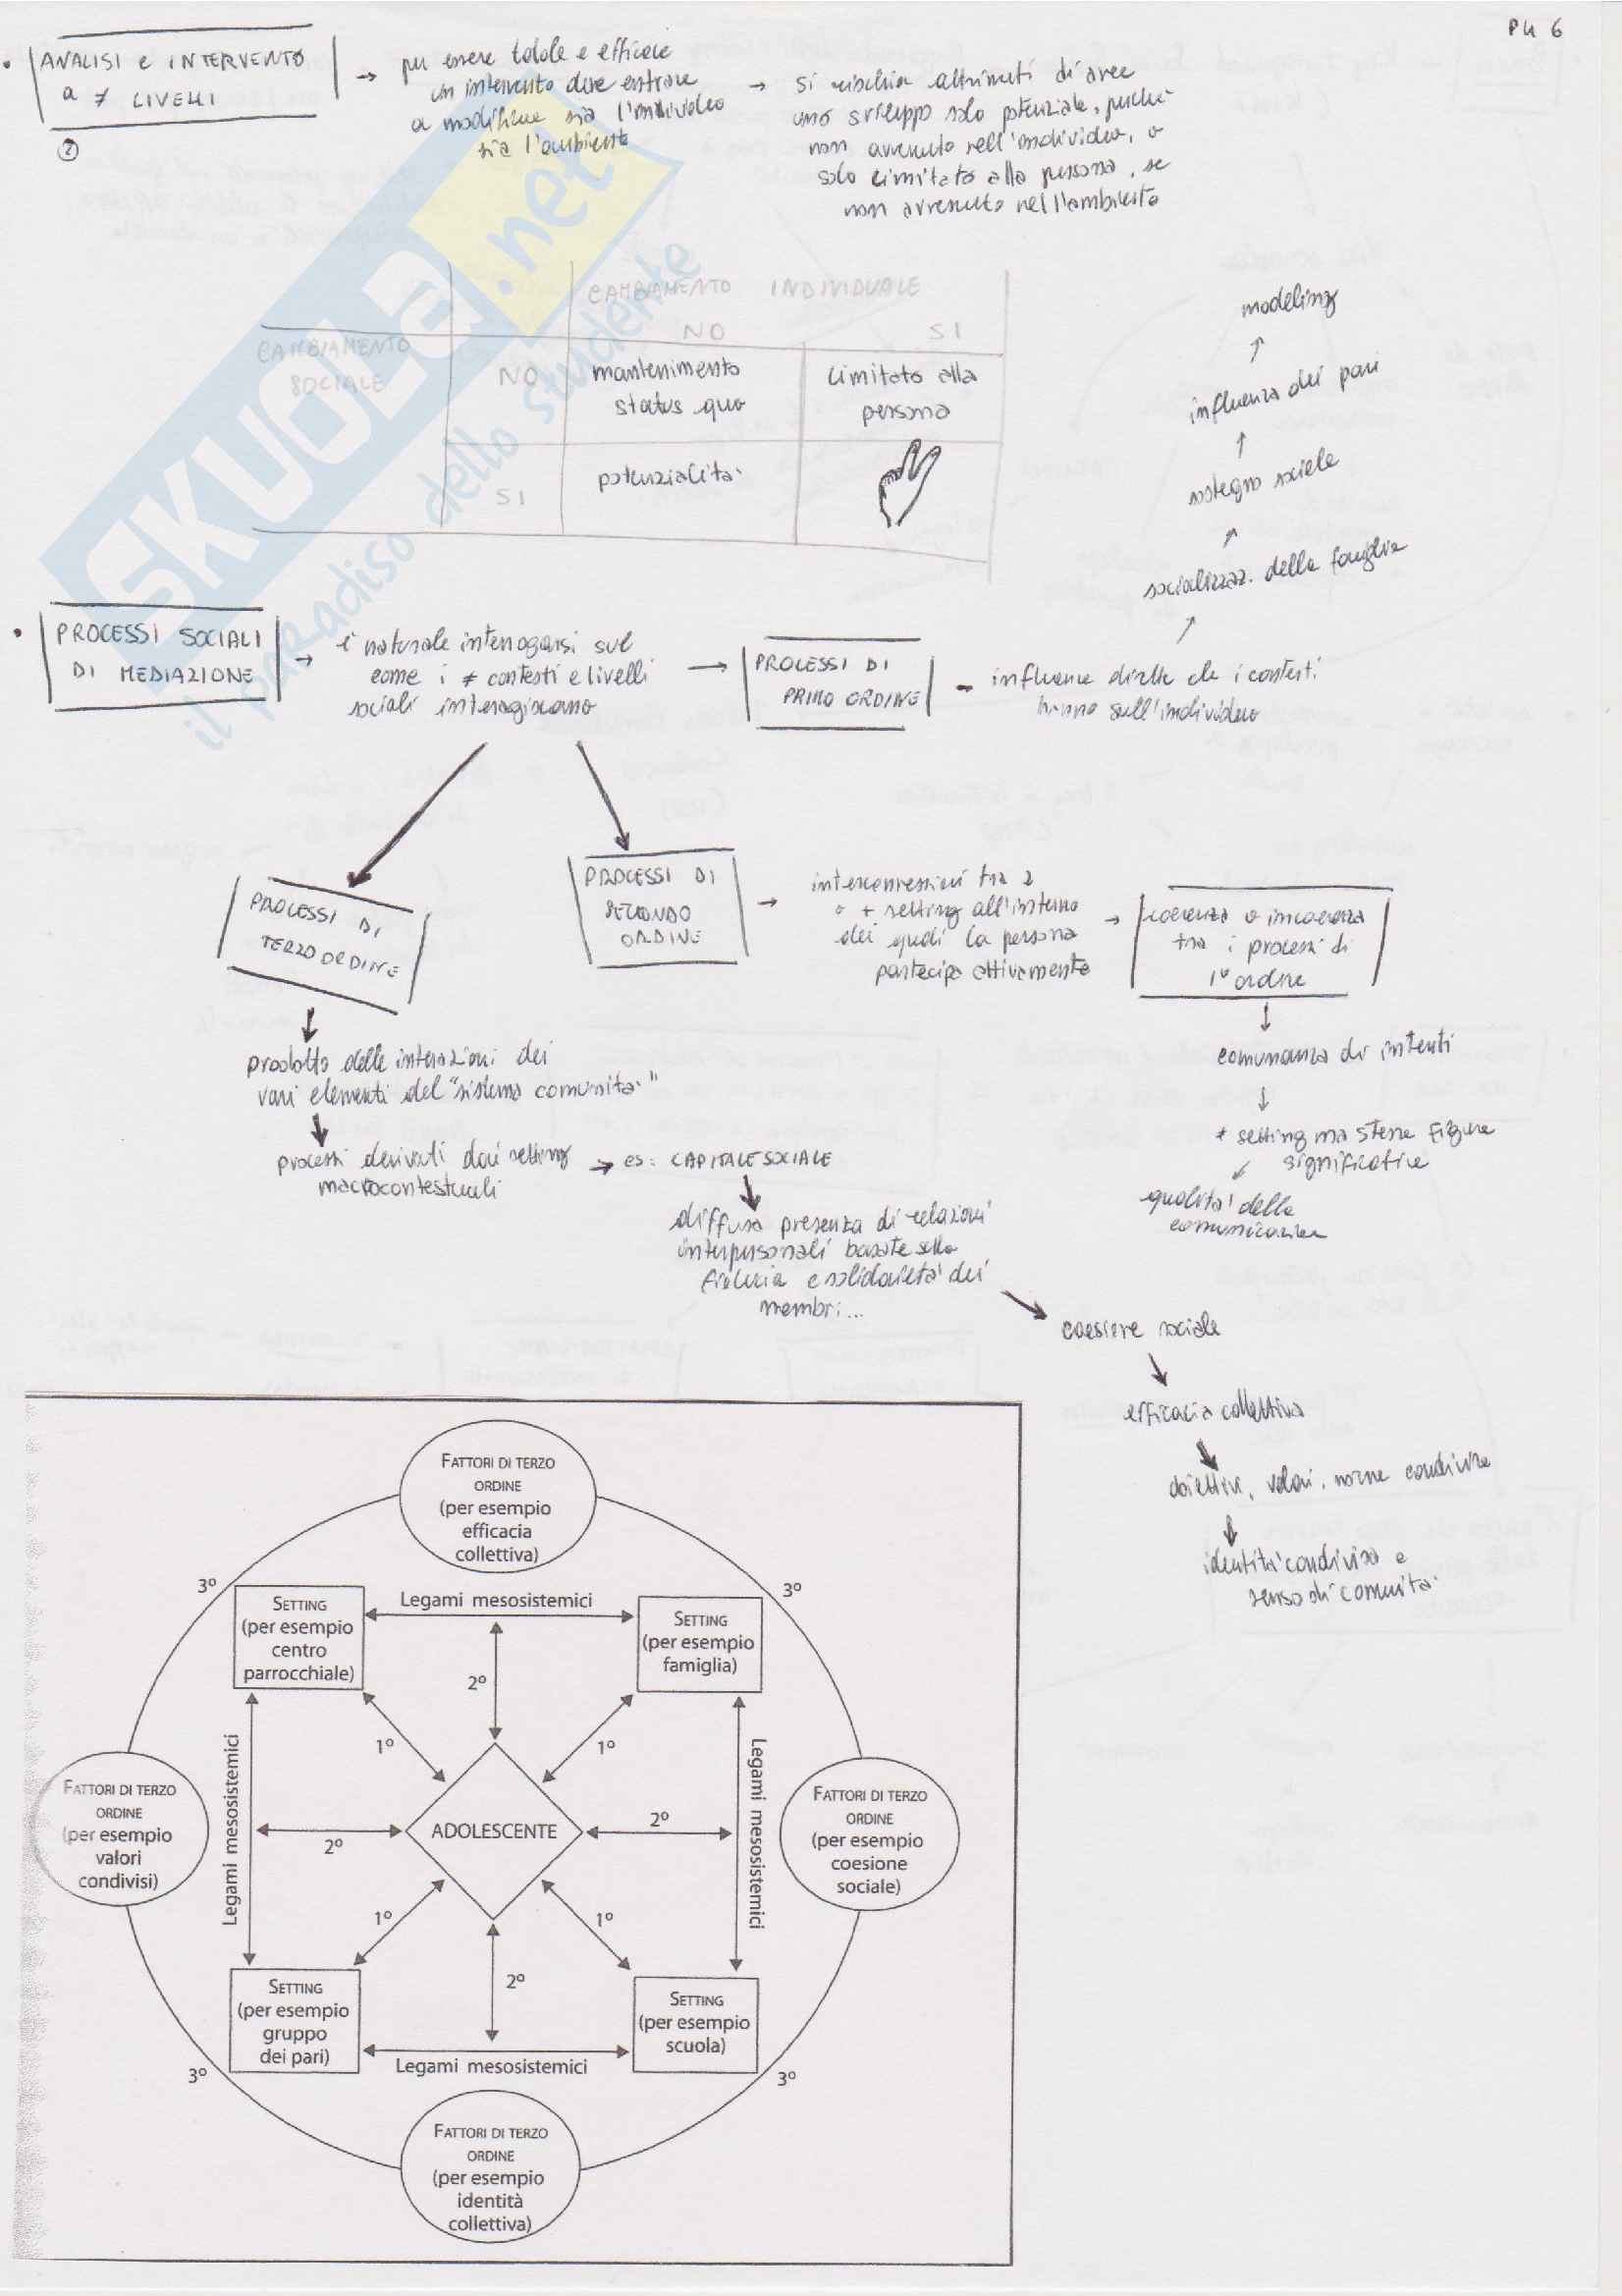 PM 6
ANALISI e INTERVENTO
a ≠ LIVELLI
②
→ per essere totale e efficace
un intervento deve entrare
a modificare sia l'individuo
sia l'ambiente
→ si rischia altrimenti di avere
uno sviluppo solo potenziale, perché
non avvenuto nell'individuo, o
solo limitato alla persona, se
non avvenuto nell'ambiente
CAMBIAMENTO INDIVIDUALE
NO SI
CAMBIAMENTO
SOCIALE
NO
mantenimento
status quo
limitato alla
persona
SI
potenzialità
modeling
↑
influenza dei pari
↑
sostegno sociale
↑
socializzaz. della famiglia
PROCESSI SOCIALI
DI MEDIAZIONE
→ è naturale interrogarsi sul
come i ≠ contesti e livelli
sociali interagiscano
→ PROCESSI DI
PRIMO ORDINE
- influenze dirette che i contesti
hanno sull'individuo
PROCESSI DI
TERZO ORDINE
PROCESSI DI
SECONDO
ORDINE
→ interconnessioni tra 2
o + setting all'interno
dei quali la persona
partecipa attivamente
→ coerenza o incoerenza
tra i processi di
1° ordine
↓
comunanza di intenti
↓
≠ setting ma stesse figure
significative
qualità della
comunicazione
prodotto delle interazioni dei
vari elementi del "sistema comunità"
↓
processi derivati dai setting
macrocontestuali
→ es: CAPITALE SOCIALE
diffusa presenza di relazioni
interpersonali basate sulla
fiducia e solidarietà dei
membri...
coesione sociale
efficacia collettiva
obiettivi, valori, norme condivise
identità condivisa e
senso di comunità
FATTORI DI TERZO
ORDINE
(per esempio
efficacia
collettiva)
3º
3º
SETTING
(per esempio
centro
parrocchiale)
Legami mesosistemici
SETTING
(per esempio
famiglia)
2º
1º
1º
Legami mesosistemici
Legami mesosistemici
FATTORI DI TERZO
ORDINE
(per esempio
valori
condivisi)
2º
ADOLESCENTE
2º
FATTORI DI TERZO
ORDINE
(per esempio
coesione
sociale)
1º
1º
2º
SETTING
(per esempio
gruppo
dei pari)
Legami mesosistemici
SETTING
(per esempio
scuola)
3º
3º
FATTORI DI TERZO
ORDINE
(per esempio
identità
collettiva)
SKUOLA.net
il paradiso dello studente